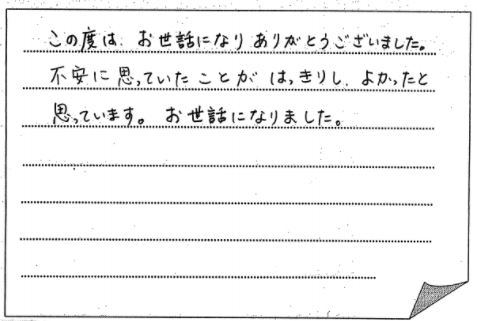 この度は、お世話になりありがとうございました。
不安に思っていたことがはっきりし、よかったと
思っています。お世話になりました。